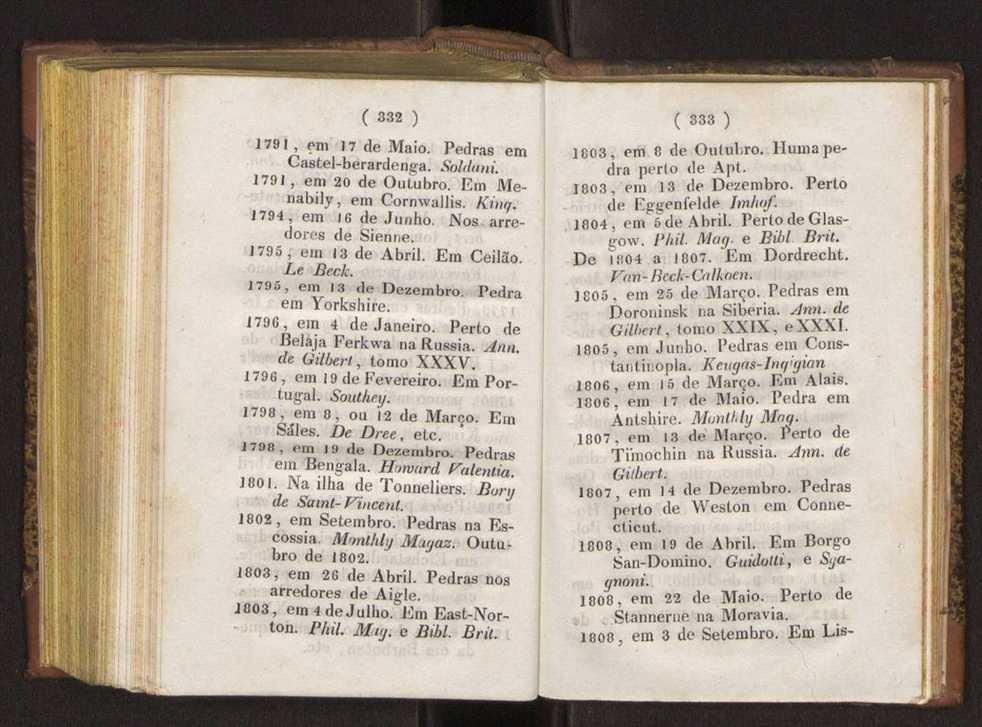 ( 332 )
1791, em 17 de Maio. Pedras em
Castel-berardenga. Soldani.
1791, em 20 de Outubro. Em Me-
nabily, em Cornwallis. King.
1794, em 16 de Junho. Nos arre-
dores de Sienne.
1795, em 13 de Abril. Em Ceilão.
Le Beck.
1795, em 13 de Dezembro. Pedra
em Yorkshire.
1796, em 4 de Janeiro. Perto de
Belaja Ferkwa na Russia. Ann.
de Gilbert, tomo XXXV.
1796, em 19 de Fevereiro. Em Por-
tugal. Southey.
1798, em 8, ou 12 de Março. Em
Sáles. De Dree, etc.
1798, em 19 de Dezembro. Pedras
em Bengala. Howard Valentia.
1801. Na ilha de Tonneliers. Bory
de Saint-Vincent.
1802, em Setembro. Pedras na Es-
cossia. Monthly Magaz. Outu-
bro de 1802.
1803, em 26 de Abril. Pedras nos
arredores de Aigle.
1803, em 4 de Julho. Em East-Nor-
ton. Phil. Mag. e Bibl. Brit.
( 333 )
1803, em 8 de Outubro. Huma pe-
dra perto de Apt.
1803, em 13 de Dezembro. Perto
de Eggenfelde Imhof.
1804, em 5 de Abril. Perto de Glas-
gow. Phil. Mag. e Bibl Brit.
De 1804 a 1807. Em Dordrecht.
Van-Beck-Calkoen.
1805, em 25 de Março. Pedras em
Doroninsk na Siberia. Ann. de
Gilbert, tomo XXIX, e XXXI.
1805, em Junho. Pedras em Cons-
tantinopla. Keugas-Ingigian
1806, em 15 de Março. Em Alais.
1806, em 17 de Maio. Pedra em
Antshire. Monthly Mag.
1807, em 13 de Março. Perto de
Timochin na Russia. Ann. de
Gilbert.
1807, em 14 de Dezembro. Pedras
perto de Weston em Conne-
cticut.
1808, em 19 de Abril. Em Borgo
San-Domino. Guidotti, e Sga-
gnoni.
1808, em 22 de Maio. Perto de
Stannerne na Moravia.
1808, em 3 de Setembro. Em Lis-